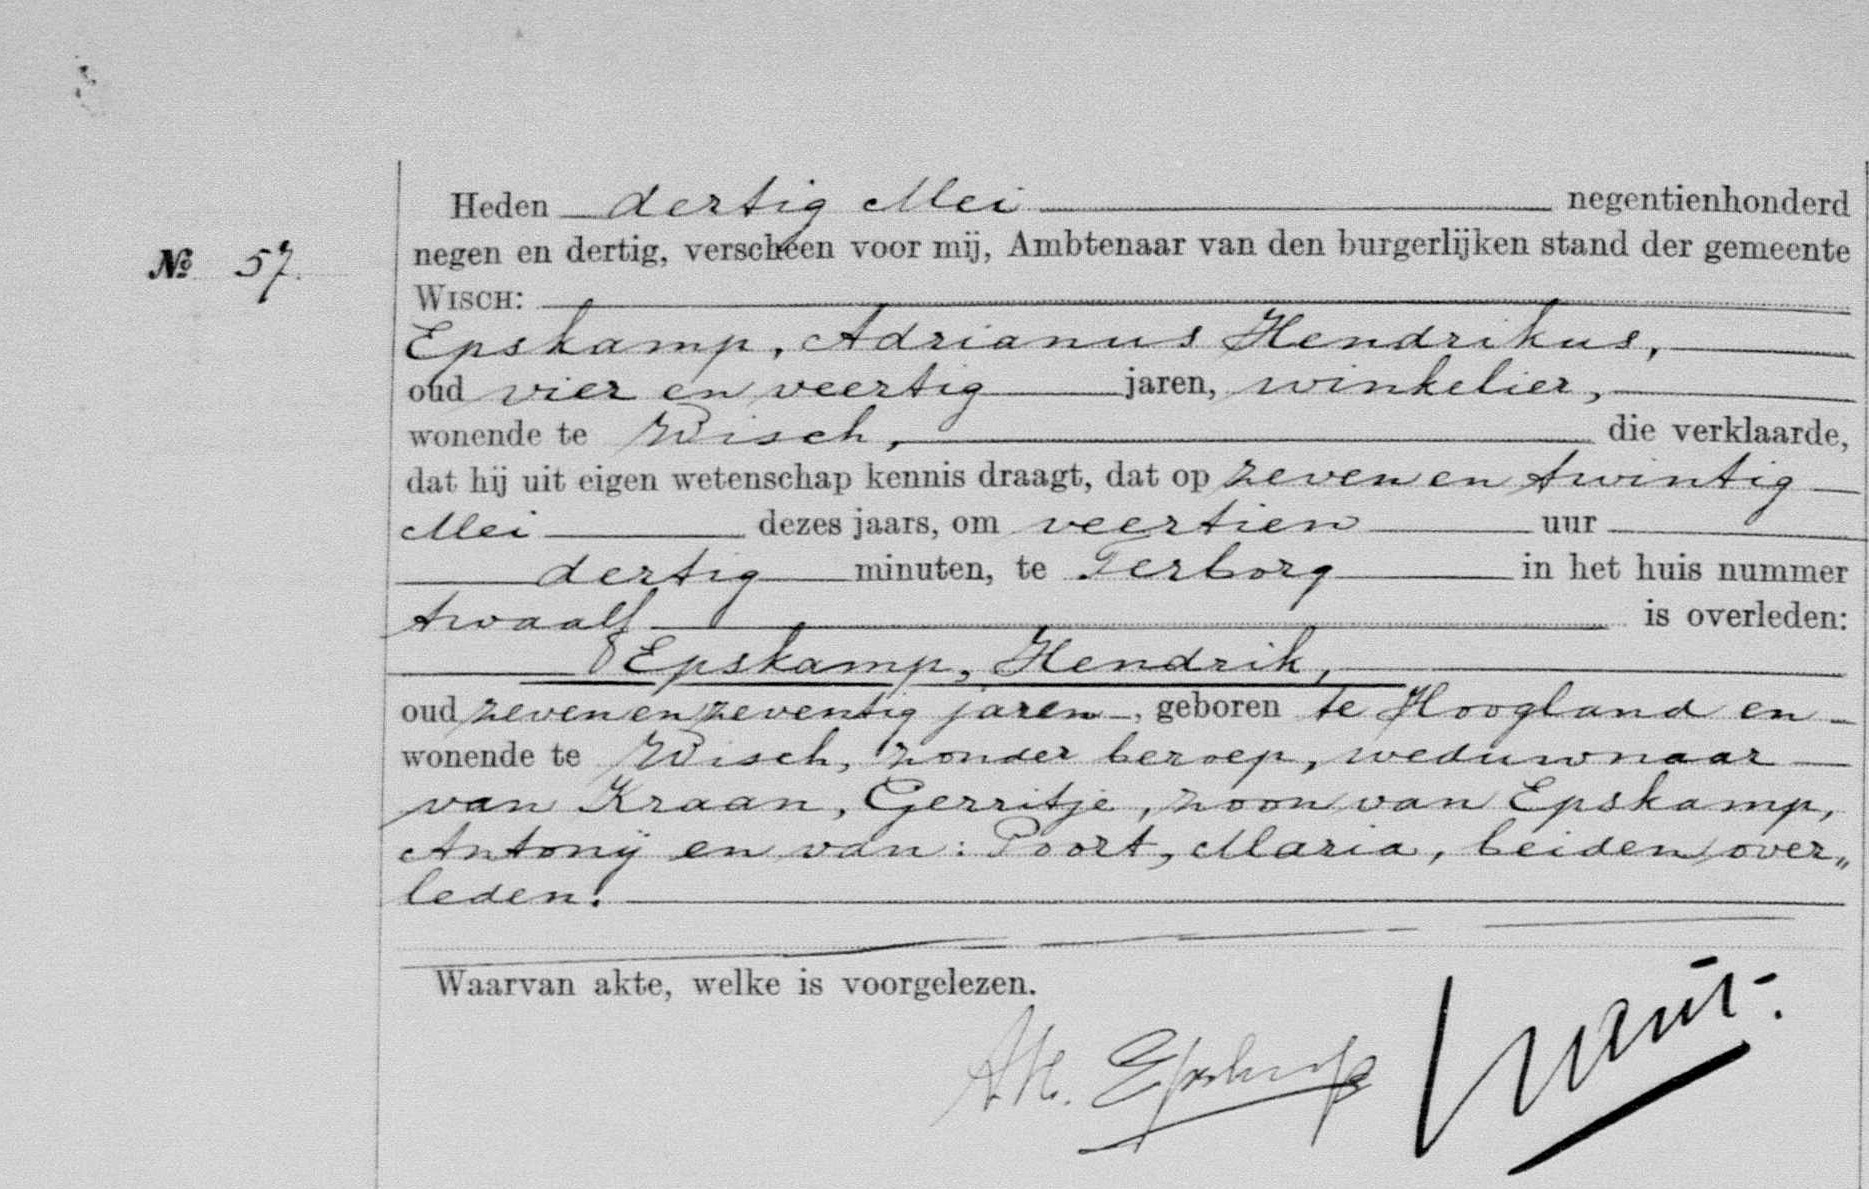 Heden dertig Mei negentienhonderd
negen en dertig, verscheen voor mij, Ambtenaar van den burgerlijken stand der gemeente
№ 57.
WISCH:
Epskamp, Adrianus Hendrikus,
oud vier en veertig jaren, winkelier,
wonende te Wisch, die verklaarde,
dat hij uit eigen wetenschap kennis draagt, dat op zeven en twintig
Mei dezes jaars, om veertien uur
dertig minuten, te Terborg in het huis nummer
twaalf is overleden:
Epskamp, Hendrik,
oud zeven en zeventig jaren, geboren te Hoogland en
wonende te Wisch, zonder beroep, weduwnaar
van Kraan, Gerritje, zoon van Epskamp,
Antonij en van: Poort, Maria, beiden over„
leden.
Waarvan akte, welke is voorgelezen.
AH. Epskamp